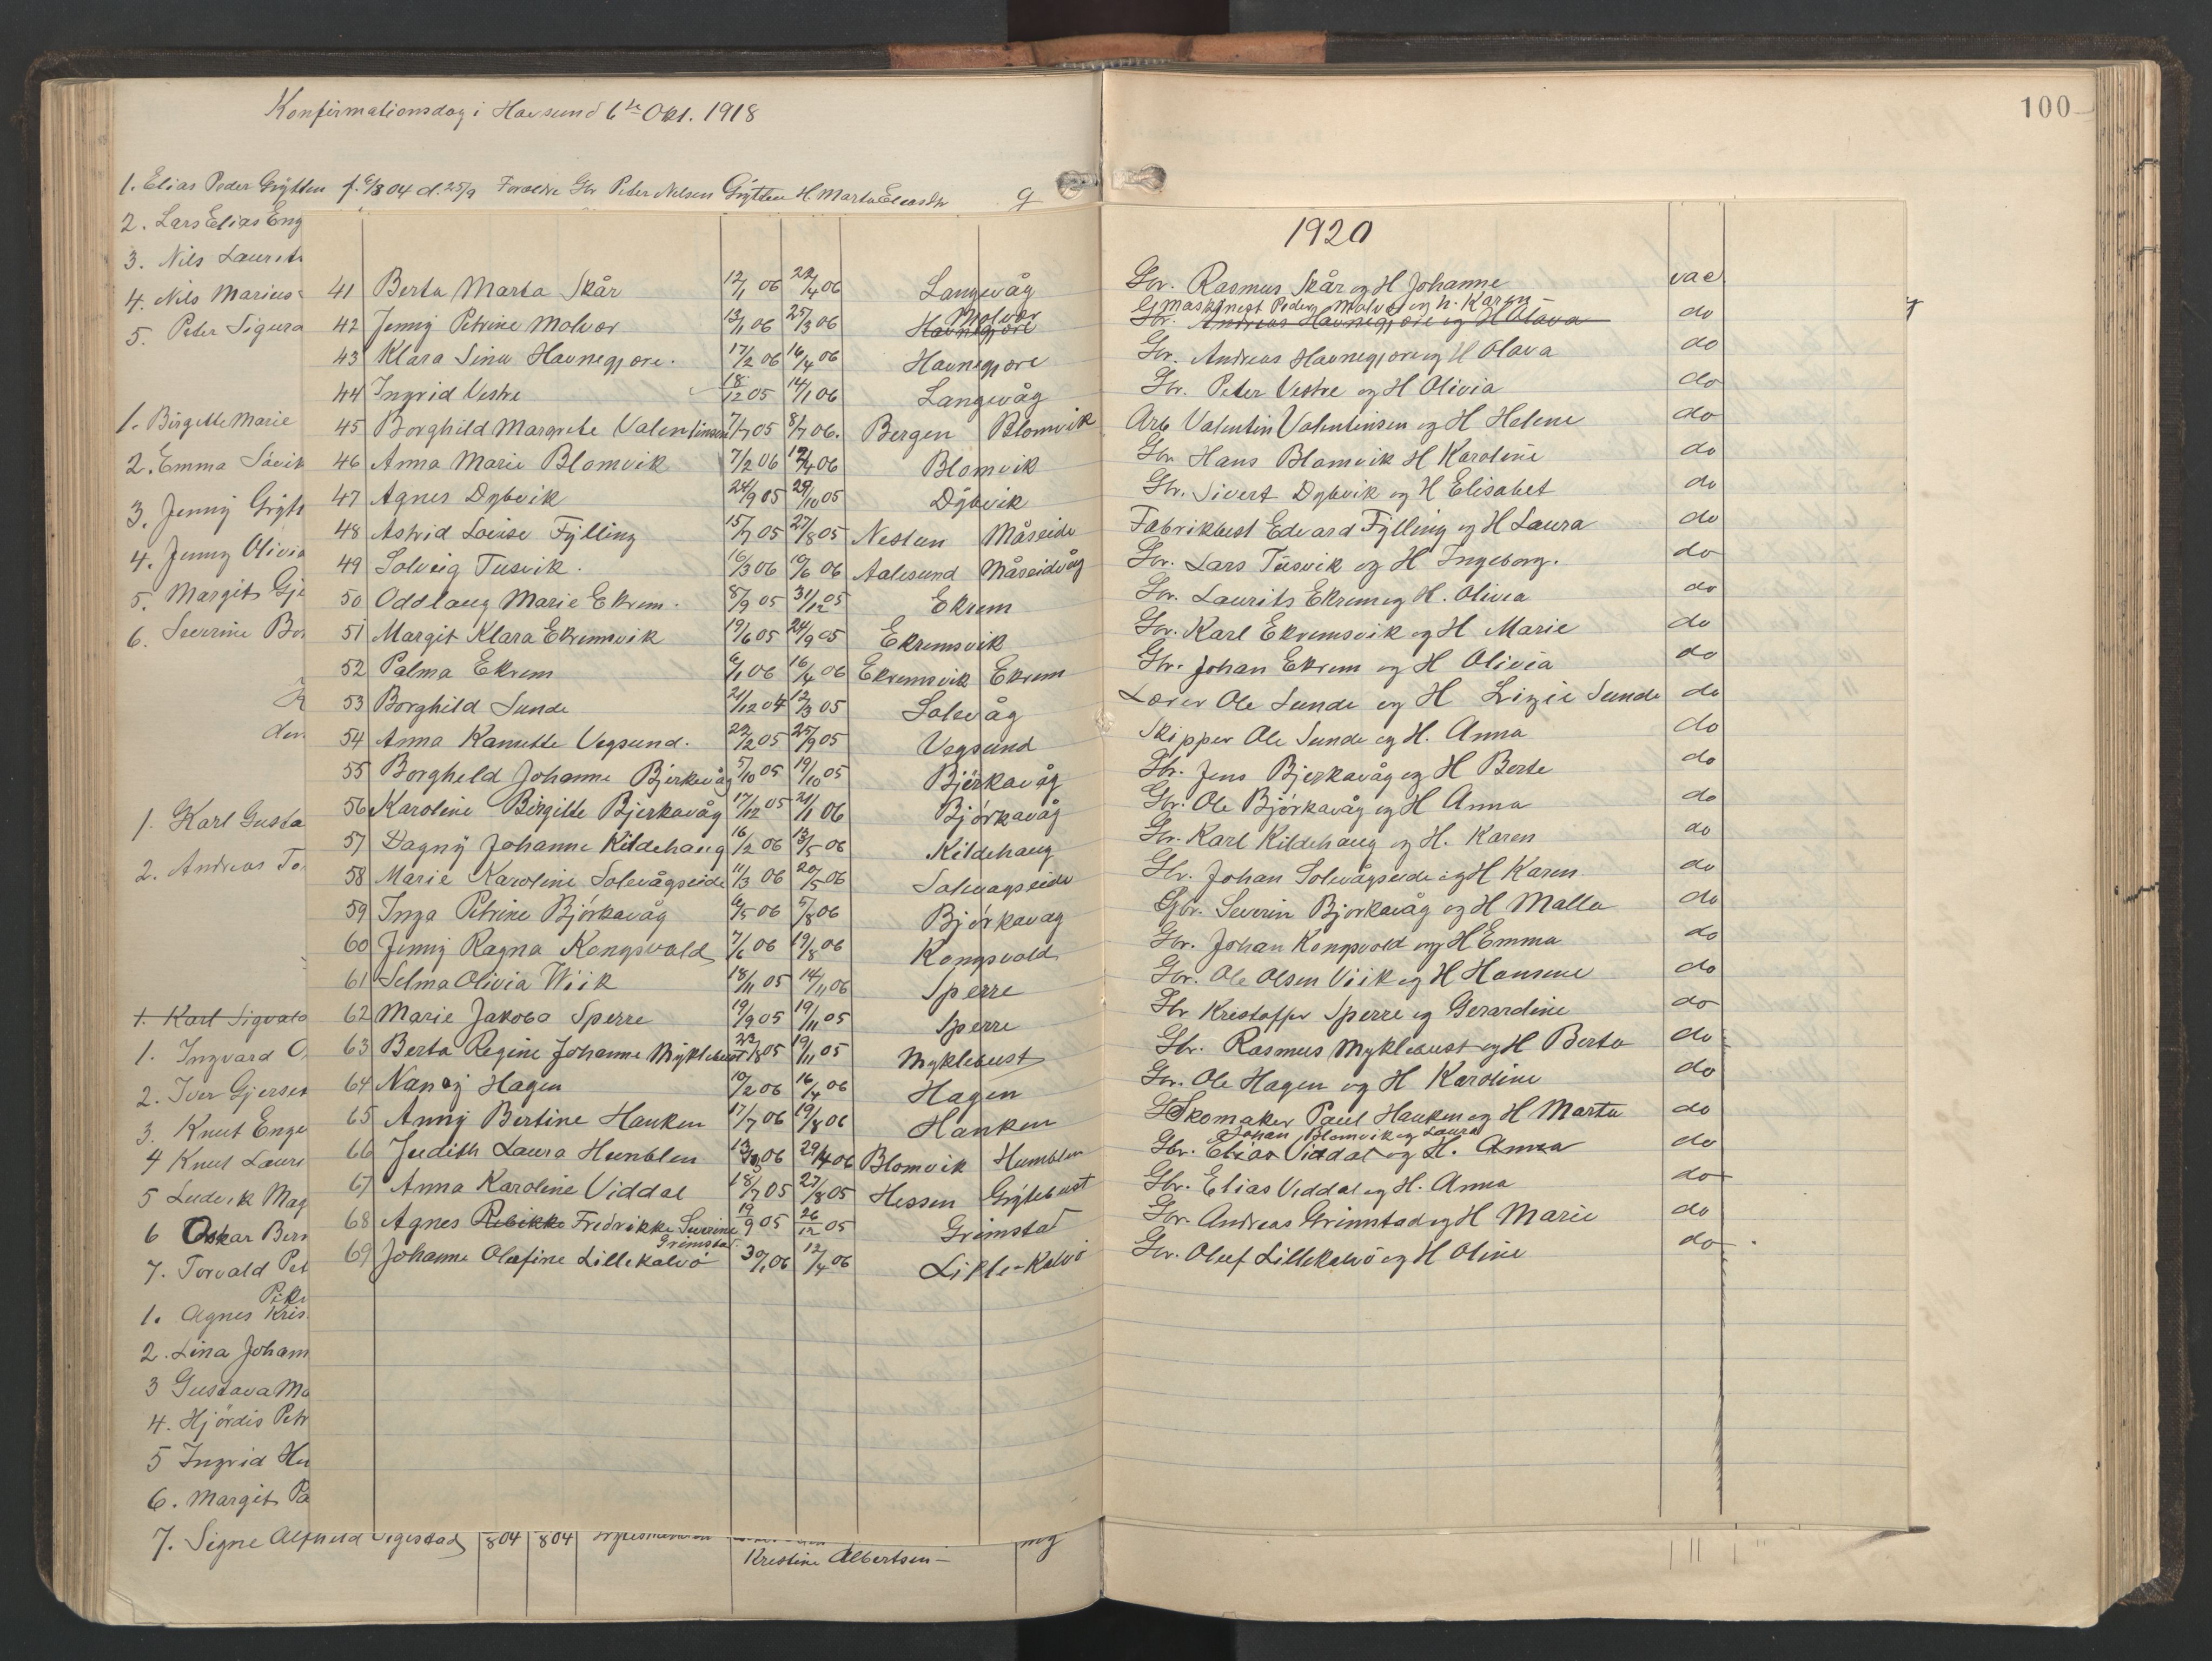 Konfirmationsdag i Havsund 6te Okt. 1918
100
1. Elias Peder Grytten f. 6/8 04 d. 25/9 Forældre Gbr Peter Nilsen Grytten H Marta Eliasdtr g
2. Lars Elias Eng
3. Nils Laurits
4. Nils Marius
5. Peter Sigura
1. Birgitte Marie
2. Emma Søvik
3. Jenny Gryt
4. Jenny Olivia
5. Margit Gje
6. Severine Bor
den
1. Karl Gusta
2. Andreas To
1. Karl Sigvald
1. Ingvard O
2. Iver Gjerset
3. Knut Enge
4 Knut Lauri
5 Ludvik Mag
6 Oskar Bern
7. Torvald Pet
Pik
1. Agnes Kris
2. Lina Johann
3 Gustava Ma
4. Hjørdis Petr
5 Ingrid Hu
6. Margit Pa
7. Signe Alfhild Vegestad 804 804
Kristine Albertsen
1920
41 Berta Marta Skår 12/1 06 22/4 06 Langevåg Gbr. Rasmus Skår og H Johanne vac
42 Jenny Petrine Molvær 13/1 06 25/3 06 Havnegjøre Molvær Gbr. Andreas Havnegjøre og H Olava Maskinest Peder Molvær og h. Karen do
43 Klara Sina Havnegjøre. 17/2 06 16/4 06 Havnegjøre Gbr. Andreas Havnegjøre og H Olava do
44 Ingrid Vestre 18/12 05 14/1 06 Langevåg Gbr. Peter Vestre og H Olivia do
45 Borghild Margrete Valentinsen 7/7 05 8/7 06. Bergen Blomvik Arb Valentin Valentinsen og H Helene do
46 Anna Marie Blomvik 7/2 06 17/4 06 Blomvik Gbr Hans Blomvik H Karoline do
47 Agnes Dybvik 24/9 05 29/10 05 Dybvik Gbr. Sivert Dybvik og H Elisabet do
48 Astrid Lovise Fylling 15/7 05 27/8 05 Nestun Måseide Fabrikbest Edvard Fylling og H Laura do
49 Solveig Tusvik. 16/3 06 10/6 06 Aalesund Måseidvåg Gbr. Lars Tusvik og H Ingeborg. do
50 Oddlaug Marie Ekrem. 8/9 05 31/12 05 Ekrem Gbr. Laurits Ekrem og H. Olivia do
51 Margit Klara Ekremsvik 19/6 05 24/9 05 Ekremsvik Gbr. Karl Ekremsvik og H Marie do
52 Palma Ekrem 6/1 06 16/4 06 Ekremsvik Ekrem Gbr. Johan Ekrem og H Olivia do
53 Borghild Sunde 21/12 04 12/3 05 Solevåg Lærer Ole Sunde og H Lizie Sunde do
54 Anna Kamitte Vegsund. 22/2 05 25/9 05 Vegsund Skipper Ole Sunde og H. Anna do
55 Borgheld Johanne Bjerkevåg 5/10 05 19/10 05 Bjørkavåg Gbr. Jens Bjerkavåg og H Berte do
56 Karoline Birgitte Bjerkavåg 17/12 05 21/1 06 Bjørkavåg Gbr. Ole Bjørkavåg og H Anna do
57 Dagny Johanne Kildehaug 16/2 06 13/5 06 Kildehaug Gbr. Karl Kildehaug og H. Karen do
58 Marie Karoline Solevågseide 11/3 06 20/5 06 Solevagseide Gbr. Johan Solevågseide og H Karen do
59 Inga Petrine Bjørkavåg 6/5 06 5/8 06 Bjørkavåg Gbr. Severin Bjørkavåg og H Malla do
60 Jenny Ragna Kongsvold 7/6 06 19/8 06 Kongsvold Gbr. Johan Kongsvold og H Emma do
61 Selma Olivia Wiik 18/11 05 14/11 06 Sperre Gbr. Ole Olsen Viik og H Hansine do
62 Marie Jakoba Sperre 19/9 05 19/11 05 Sperre Gbr Kristoffer Sperre og Gerardine do
63 Berta Regine Johanne Myklebust 22/8 05 19/11 05 Myklebust Gbr. Rasmus Myklebust og H Berta do
64 Nancy Hagen 10/2 06 16/4 06 Hagen Gbr. Ole Hagen og H Karoline do
65 Anny Bertine Hanken 17/7 06 19/8 06 Hanken Skomaker Paul Hanken og H Marta do
66 Judith Laura Humblen 06 29/4 06 Blomvik Humblen Gbr. Elias Viddal og H. Anna Johan Blomvik og Laura do
67 Anna Karoline Viddal 18/7 05 27/8 05 Hessen Grytebust Gbr. Elias Viddal og H. Anna do
68 Agnes Rebikke Fredrikke Severine Grimstad 19/9 05 26/12 05 Grimstad Gbr. Andreas Grimstad og H Marie do
69 Johanne Olufine Lillekalvø 30/1 06 12/4 06 Lille-Kalvø Gbr. Oluf Lillekalvø og H Oline do